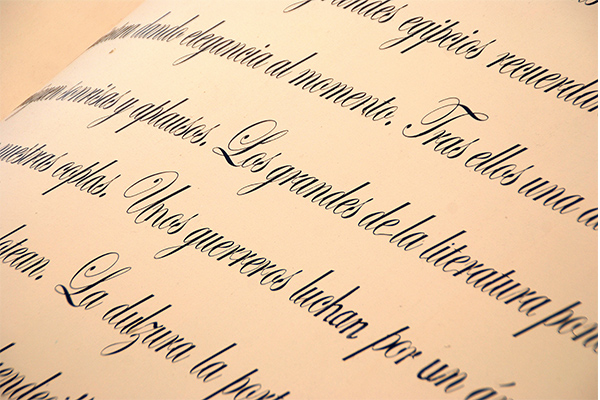 grandes egipcios recuerdan
dando elegancia al momento. Tras ellos una
sonrisas y aplausos. Los grandes de la literatura pon
nuestras coplas. Unos guerreros luchan por un án
otean. La dulzura la port